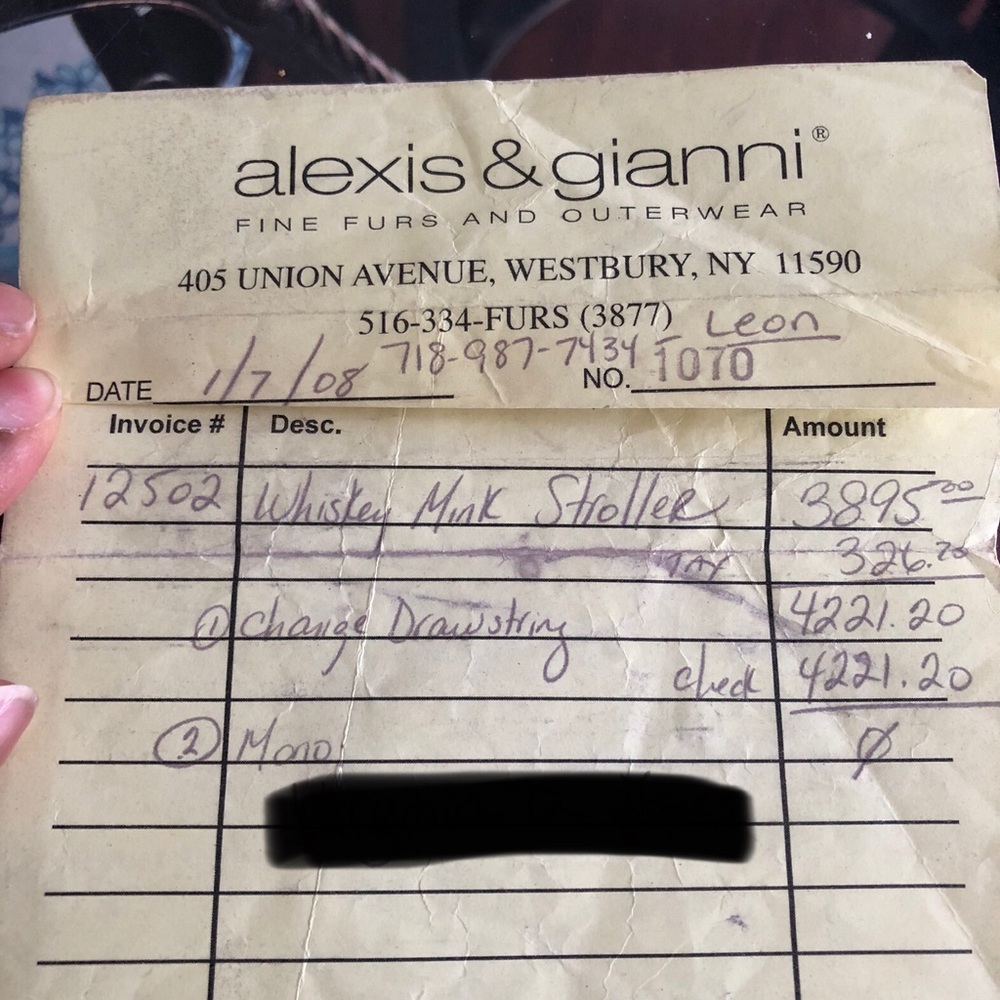 alexis & gianni®
FINE FURS AND OUTERWEAR
405 UNION AVENUE, WESTBURY, NY 11590
516-334-FURS (3877) Leon
718-987-7434
DATE 1/7/08 NO. 1070
Invoice # Desc. Amount
12502 Whiskey Mink Stroller 3895.00
TAX 326.20
① Change Drawstring 4221.20
check 4221.20
② Mono Ø